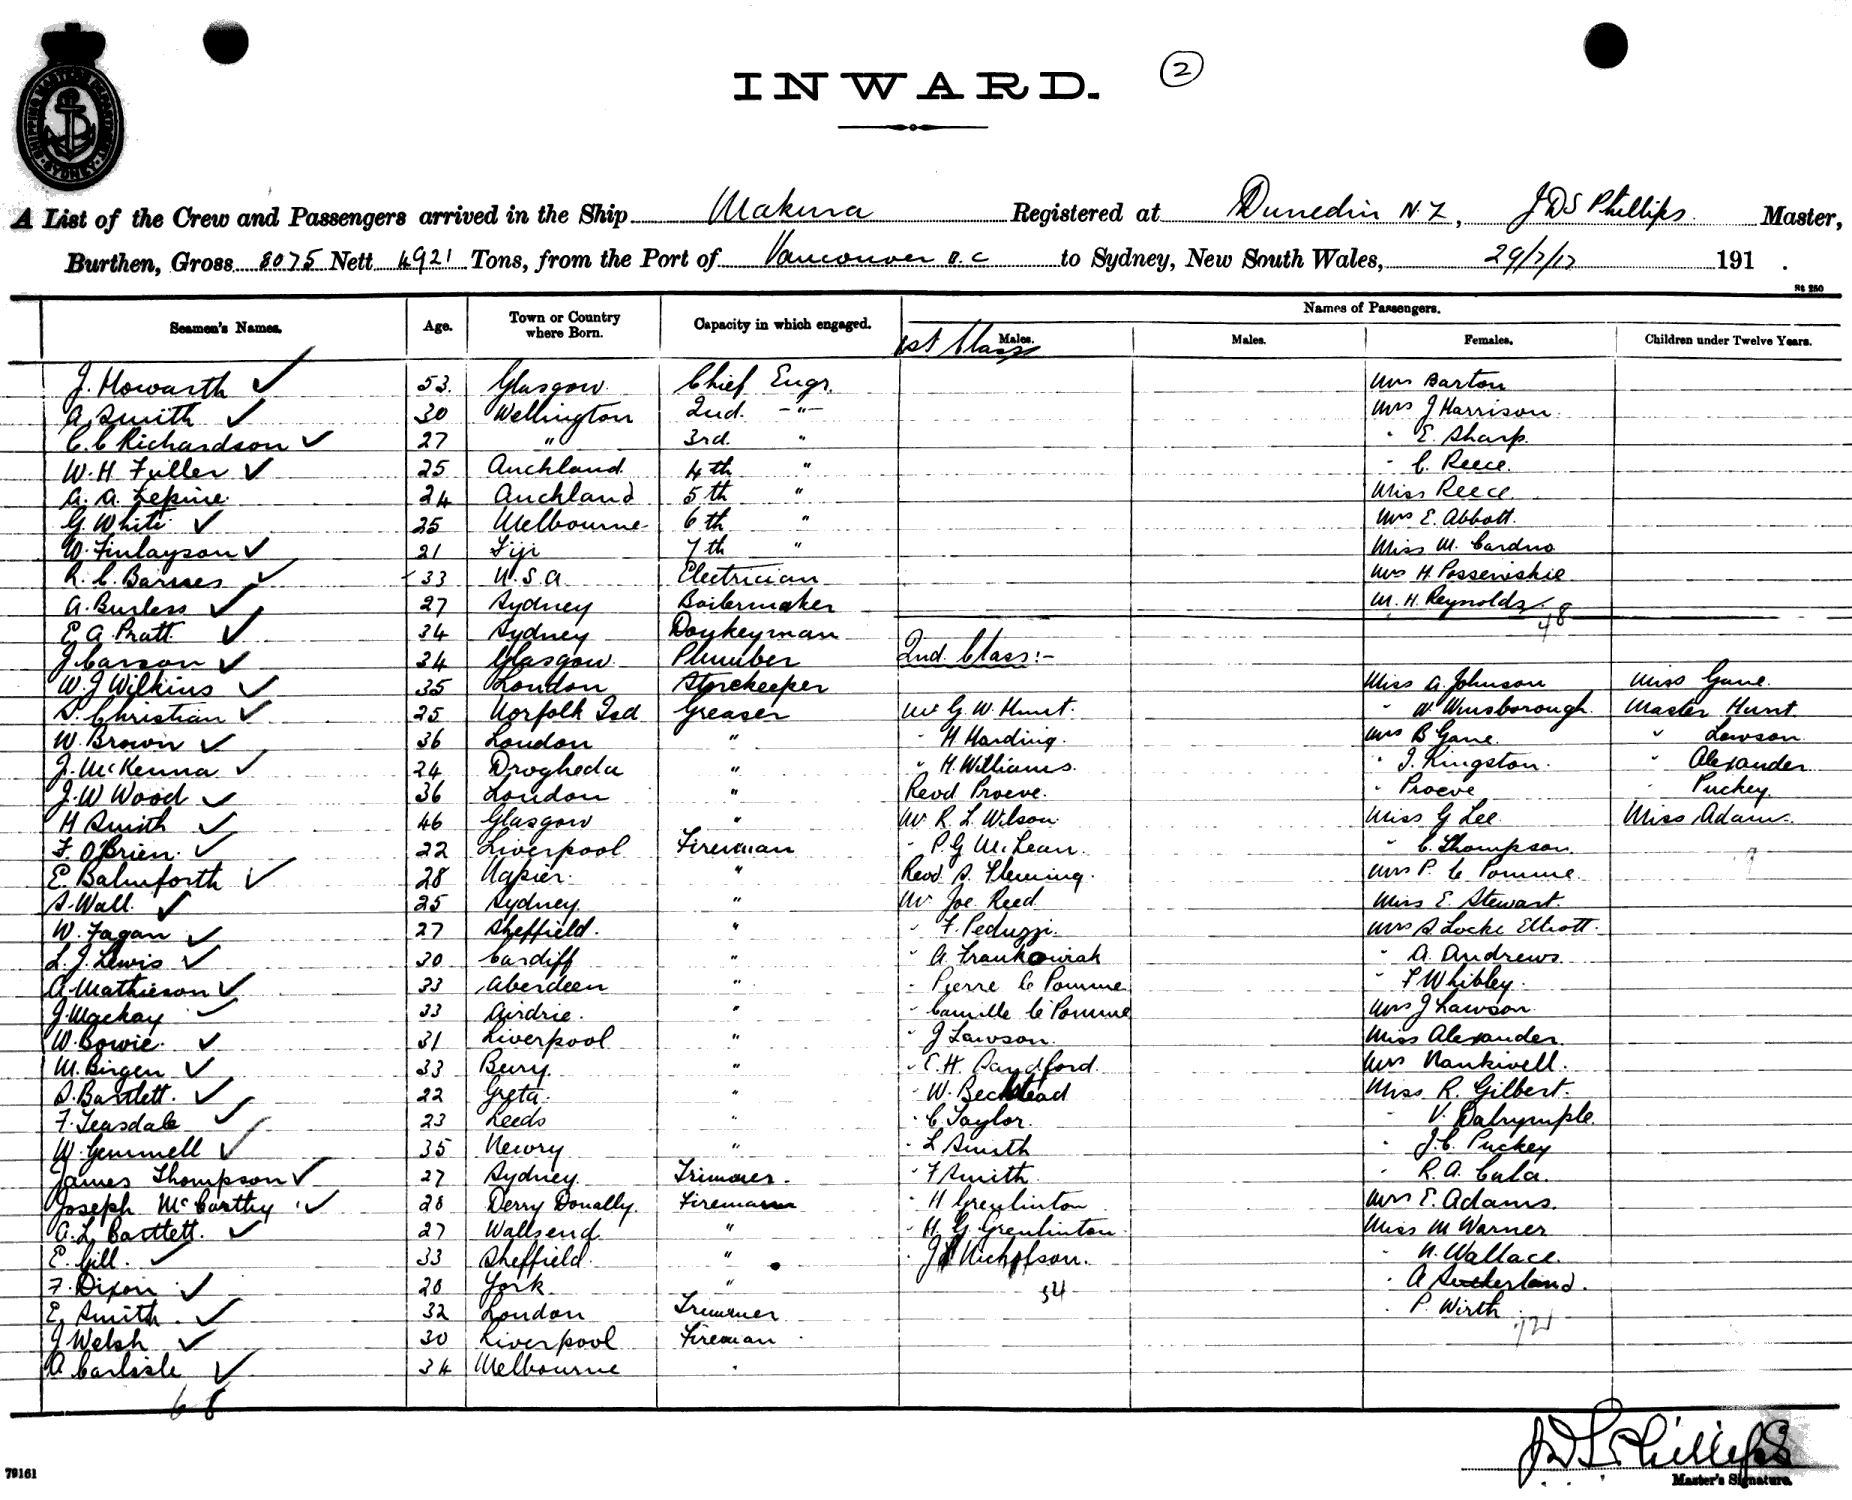 INWARD.
2
SHIPPING MASTER'S DEPARTMENT SYDNEY
A List of the Crew and Passengers arrived in the Ship Makura Registered at Dunedin N.Z, JDS Phillips Master,
Burthen, Gross 8075 Nett 4921 Tons, from the Port of Vancouver B.C to Sydney, New South Wales, 191 .
St 250
Seamen's Names. Age. Town or Country where Born. Capacity in which engaged. Names of Passengers.
1st Class Males. Males. Females. Children under Twelve Years.
J. Howarth 53. Glasgow. Chief Engr. Mrs Barton
A. Smith 30 Wellington 2nd. -"- Mrs J Harrison.
C. C Richardson 27 " 3rd. " " E. Sharp.
W. H Fuller 25 Auckland 4th " " C. Reece.
A. A. Lepine. 24 Auckland 5th " Miss Reece.
G. White 25 Melbourne 6th " Mrs E. Abbott.
W. Finlayson 21 Fiji 7th " Miss M. Cardno
R. C. Barnes 33 U.S.A Electrician Mrs H. Possewiskie
A. Burless 27 Sydney Boilermaker M. H. Reynolds
E A. Pratt 34 Sydney Donkeyman 48
J Carson 34 Glasgow Plumber 2nd. Class:-
W. J Wilkins 35 London Storekeeper Miss A. Johnson Miss Gane.
S. Christian 25 Norfolk Isd Greaser Mr G. W Hunt. " W. Winsborough. Master Hunt
W. Brown 36 London " " H Harding. Mrs B Gane. " Lawson
J. McKenna 24 Drogheda " " H. Williams. " J. Kingston. " Alexander
J. W Wood 36 London " Revd Proeve. " Proeve " Puckey.
H Smith 46 Glasgow " Mr R. L. Wilson Miss G Lee. Miss Adams.
F. O'Brien. 22 Liverpool Fireman " P. G McLean. " C. Thompson.
E. Balmforth 28 Napier. " Revd. S. Fleming. Mrs P. le Pomme
S. Wall. 25 Sydney " Mr Joe Reed Miss E. Stewart.
W. Fagan 27 Sheffield. " " F. Peduzzi. Mrs S Locke Elliott.
L. J. Lewis 30 Cardiff " " A Frankowiak " A. Andrews.
A. Mathieson 33 Aberdeen " " Pierre le Pomme " F Whibley.
J. Mackay 33 Airdrie. " " Camille le Pomme Mrs J Lawson.
W. Bowie. 31 Liverpool " " J Lawson. Miss Alexander
M. Birgen 33 Bury " " E. H. Sandford. Mrs Nankivell.
S. Bartlett. 22 Greta. " " W. Beckstead Miss R. Gilbert.
F. Teasdale 23 Leeds " " C Taylor. " V. Dalrymple.
W. Gemmell 35 Newry " " L Smith " J. C. Puckey
James Thompson 27 Sydney Trimmer. " F Smith. " R. A. Cula.
Joseph McCarthy 28 Derry Donally. Fireman " H Grenlinton Mrs E. Adams.
A. L. Bartlett. 27 Wallsend. " " H. G. Grenlinton. Miss M Warner
E. Gill. 33 Sheffield. " " Nicholson. " N. Wallace.
F. Dixon 28 York " 34 " A Sutherland.
E. Smith. 32 London Trimmer " P. Wirth
J Welsh 30 Liverpool Fireman
A Carlisle 34 Melbourne "
68
JDS Phillips
79161
Master's Signature.